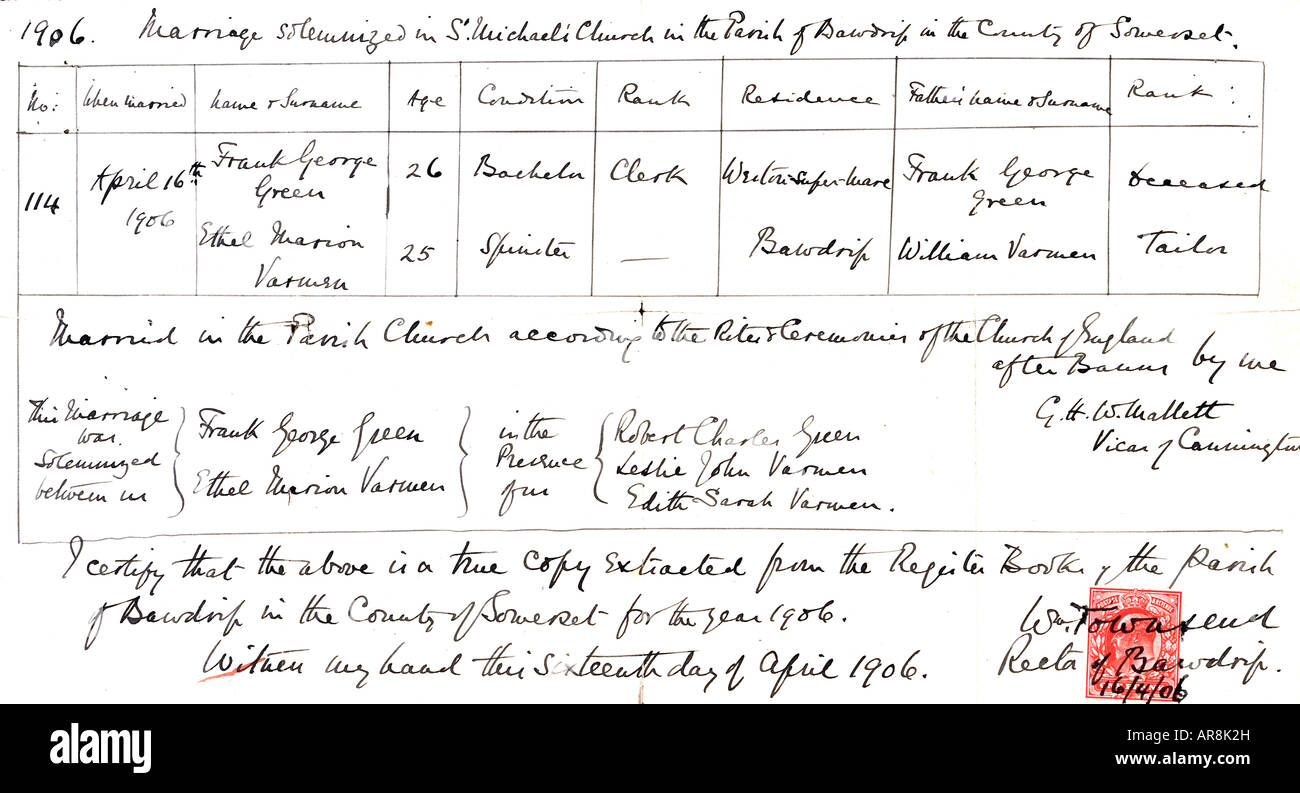 1906. Marriage solemnized in St Michael's Church in the Parish of Bawdrip in the County of Somerset.
No: When Married Name & Surname Age Condition Rank Residence Father's Name & Surname Rank
114 April 16th 1906 Frank George Green 26 Bachelor Clerk Weston-Super-Mare Frank George Green Deceased
Ethel Marion Varmen 25 Spinster — Bawdrip William Varmen Tailor
Married in the Parish Church according to the Rites & Ceremonies of the Church of England
after Banns by me
G. H. W. Mallett
Vicar of Cannington
This Marriage was solemnized between us { Frank George Green } in the Presence of us { Robert Charles Green
Ethel Marion Varmen Leslie John Varmen
Edith Sarah Varmen.
I certify that the above is a true copy extracted from the Register Book of the Parish
of Bawdrip in the County of Somerset for the year 1906. Wm. Townsend
Witness my hand this sixteenth day of April 1906. Rector of Bawdrip.
16/4/06
alamy
Image ID: AR8K2H
www.alamy.com